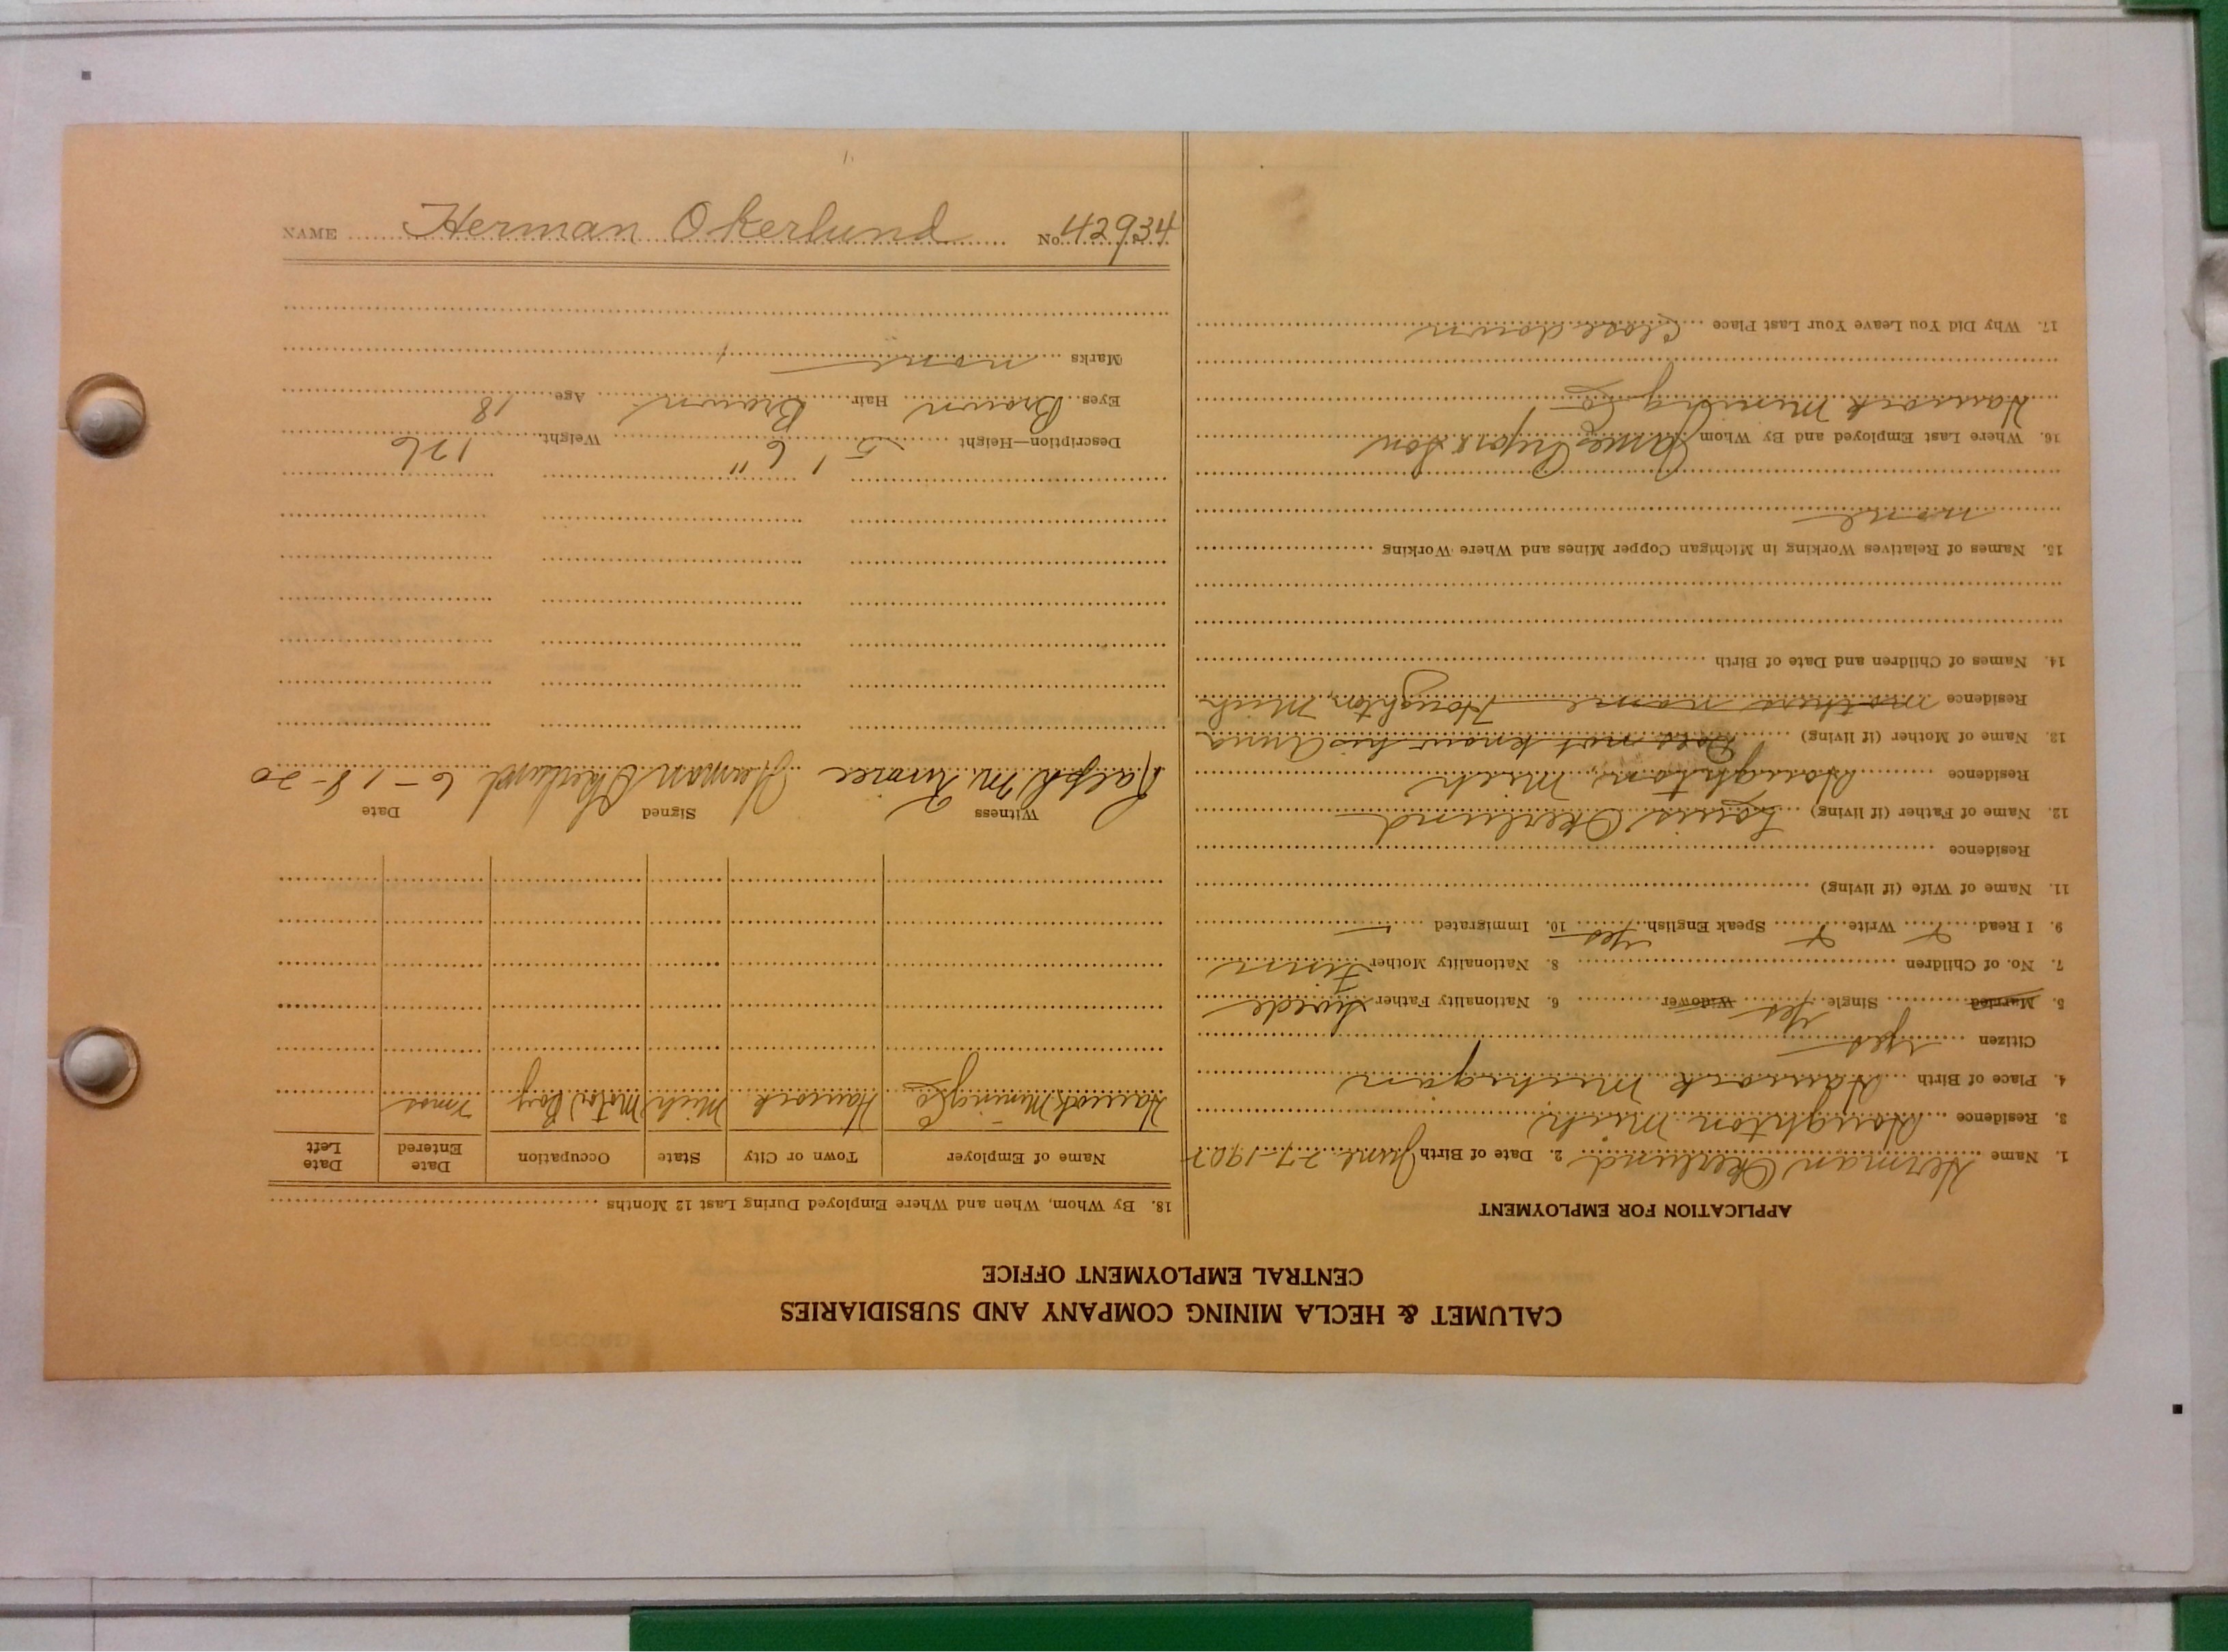 CALUMET & HECLA MINING COMPANY AND SUBSIDIARIES
CENTRAL EMPLOYMENT OFFICE
APPLICATION FOR EMPLOYMENT
1. Name Herman Okerlund 2. Date of Birth June 27-1902
3. Residence Houghton Mich
4. Place of Birth Hancock Michigan
Citizen Yes
5. Married Single Yes Widower 6. Nationality Father Swede
7. No. of Children 8. Nationality Mother Finn
9. I Read Write Speak English Yes 10. Immigrated
11. Name of Wife (if living)
Residence
12. Name of Father (if living) Louis Okerlund
Residence Houghton, Mich
13. Name of Mother (if living) Does not know his Anna
Residence mothers name Houghton, Mich
14. Names of Children and Date of Birth
15. Names of Relatives Working in Michigan Copper Mines and Where Working
none
16. Where Last Employed and By Whom James Son
Hancock Mining Co
17. Why Did You Leave Your Last Place Close down
18. By Whom, When and Where Employed During Last 12 Months
Name of Employer Town or City State Occupation Date Entered Date Left
Hancock Mining Co Hancock Mich Motor Boy 7 mos
Witness Signed Date
Ralph M. Herman Okerlund 6-18-20
Description—Height 5' 6" Weight 126
Eyes Brown Hair Brown Age 18
Marks none
NAME Herman Okerlund No. 42934